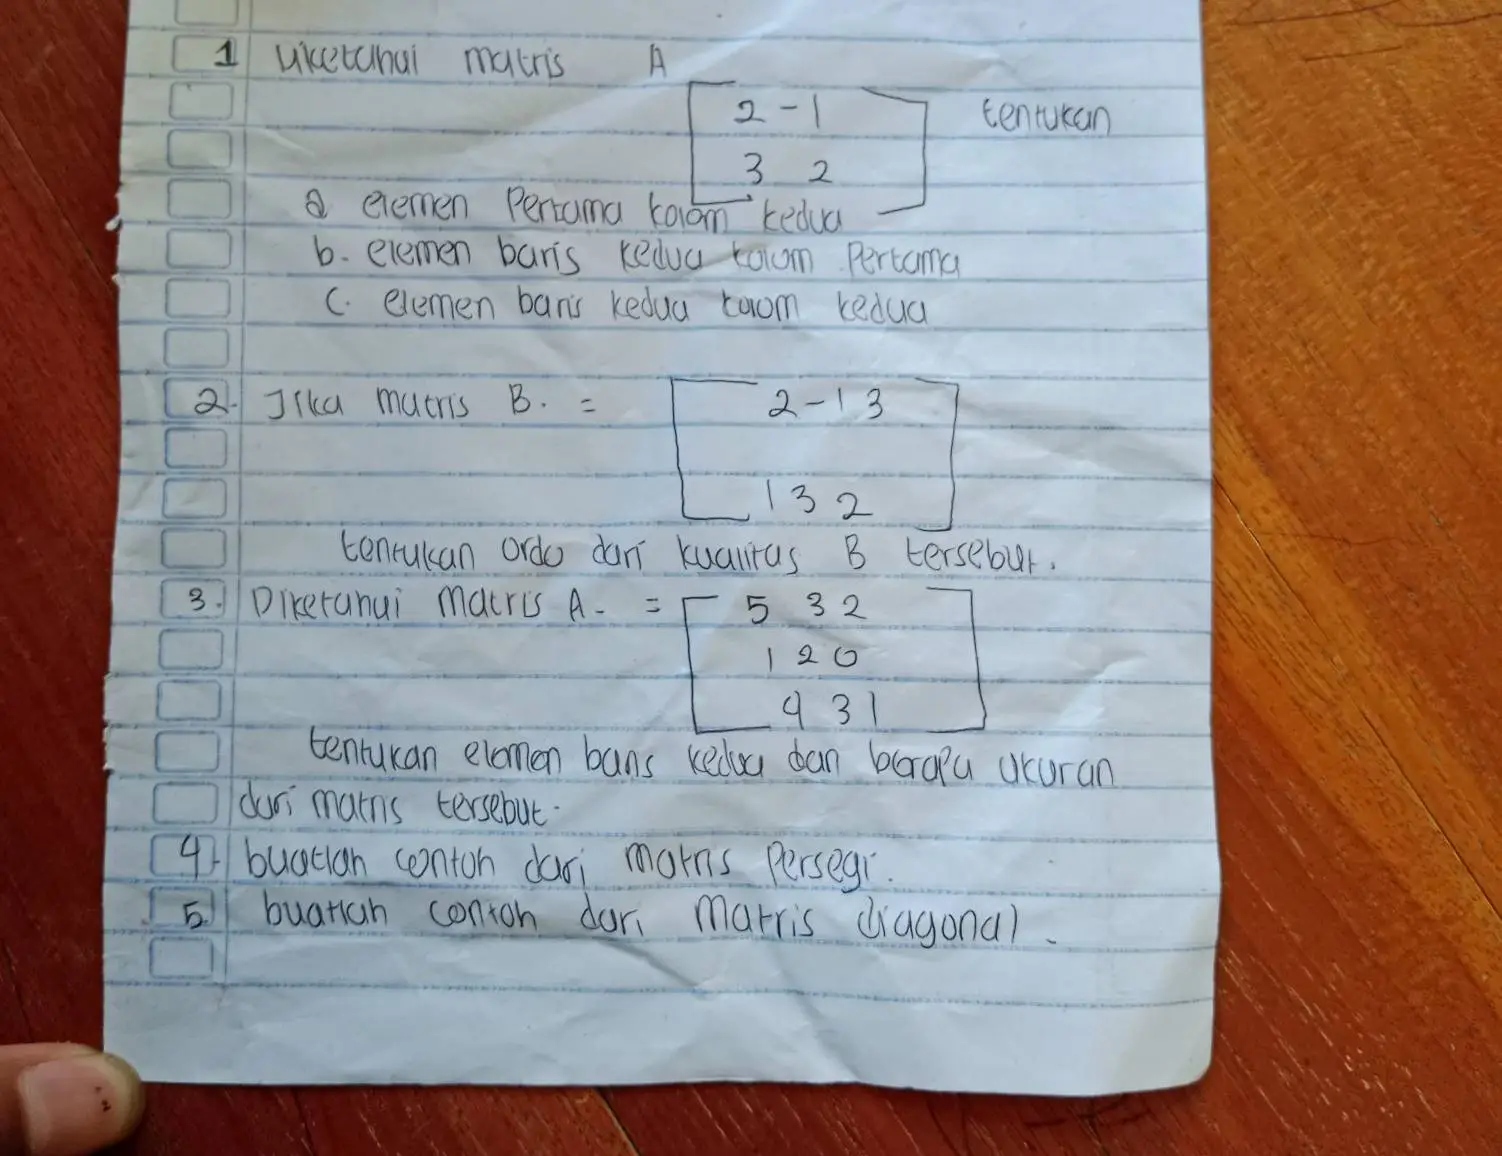 1 Diketahui matris A
2 -1 tentukan
3 2
a elemen Pertama kolom kedua
b. elemen baris kedua kolom Pertama
c. elemen baris kedua kolom kedua
2. Jika matris B. = 2 -1 3
1 3 2
tentukan ordo dari kualitas B tersebut.
3. Diketahui Matris A. = 5 3 2
1 2 0
4 3 1
tentukan elemen baris kedua dan berapa ukuran
dari matris tersebut.
4. buatlah contoh dari matris Persegi.
5. buatlah contoh dari Matris diagonal.